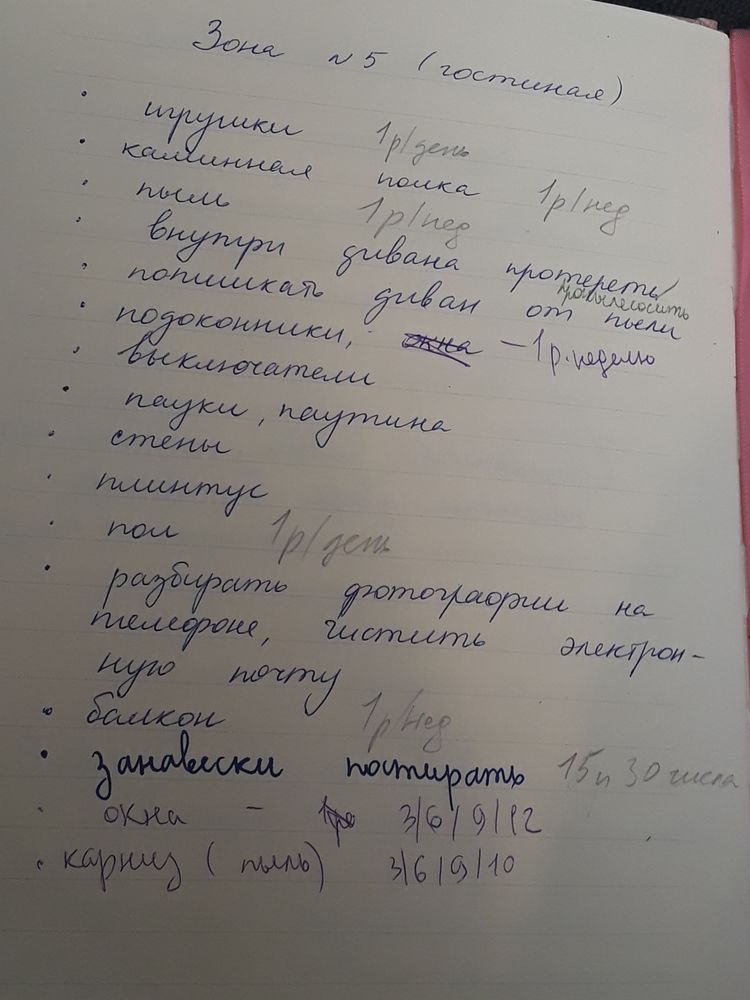 Зона N 5 (гостиная)
• игрушки 1р/день
• каминная полка 1р/нед
• пыль 1р/нед
• внутри дивана протереть/
пропылесосить
• попшикать диван от пыли
• подоконники, окна – 1р. неделю
• выключатели
• пауки, паутина
• стены
• плинтус
• пол 1р/день
• разбирать фотографии на
телефоне, чистить электрон-
ную почту
• балкон 1р/нед
• занавески постирать 15 и 30 числа
• окна – 3/6/9/12
• карниз (пыль) 3/6/9/10